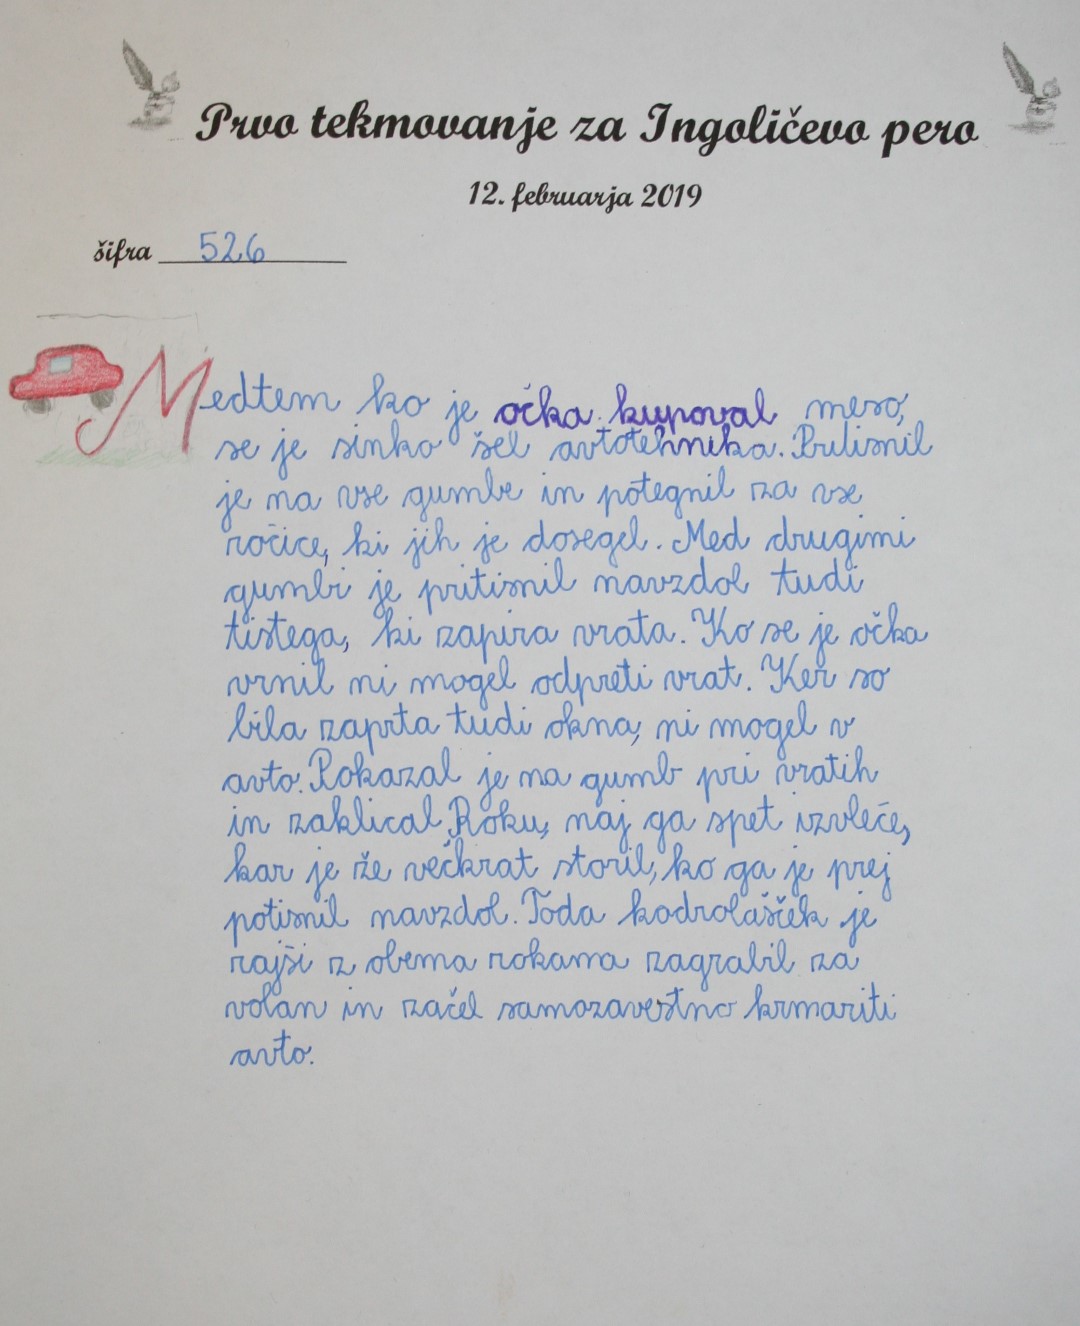 Prvo tekmovanje za Ingoličevo pero
12. februarja 2019
šifra 526
Medtem ko je očka kupoval meso,
se je sinko šel avtotehnika. Pritisnil
je na vse gumbe in potegnil za vse
ročice, ki jih je dosegel. Med drugimi
gumbi je pritisnil navzdol tudi
tistega, ki zapira vrata. Ko se je očka
vrnil ni mogel odpreti vrat. Ker so
bila zaprta tudi okna, ni mogel v
avto. Pokazal je na gumb pri vratih
in zaklical Roku, naj ga spet izvleče,
kar je že večkrat storil, ko ga je prej
potisnil navzdol. Toda kodrolašček je
rajši z obema rokama zagrabil za
volan in začel samozavestno krmariti
avto.